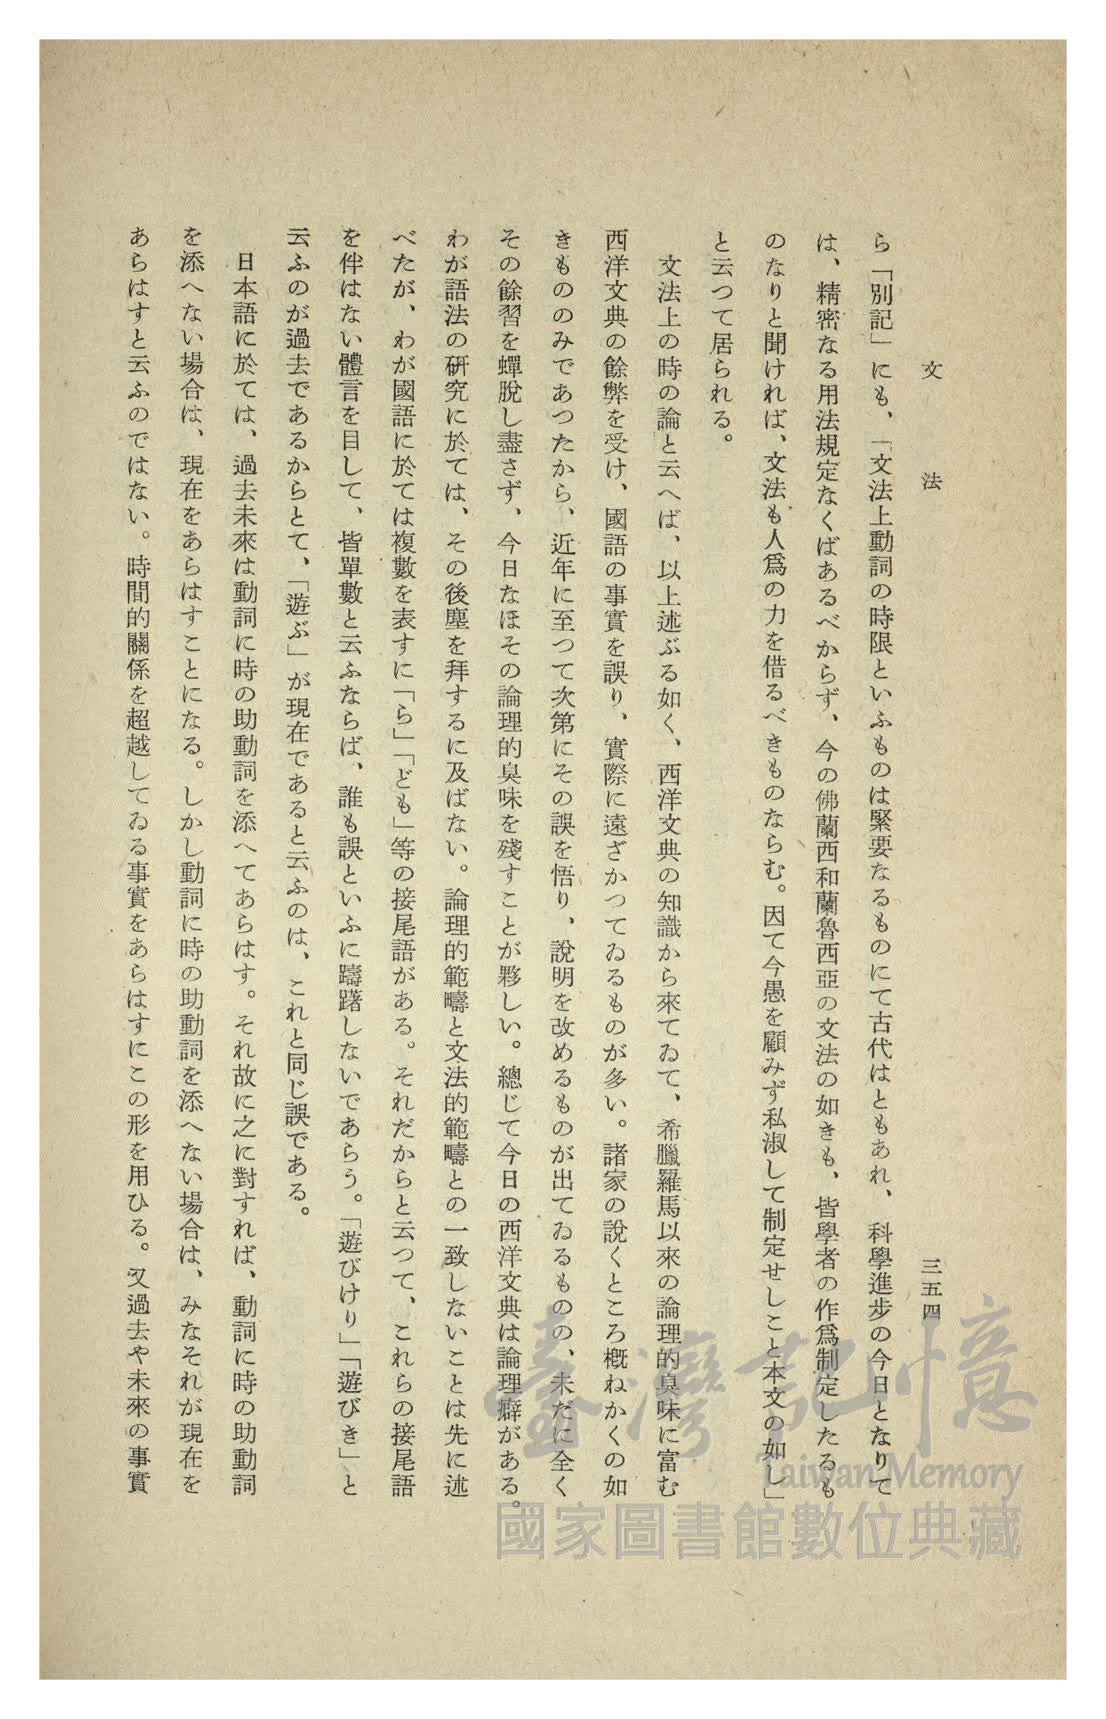 文法
三五四
ら「別記」にも、「文法上動詞の時限といふものは緊要なるものにて古代はともあれ、科學進步の今日となりて
は、精密なる用法規定なくばあるべからず、今の佛蘭西和蘭魯西亞の文法の如きも、皆學者の作爲制定したるも
のなりと聞ければ、文法も人爲の力を借るべきものならむ。因て今愚を顧みず私淑して制定せしこと本文の如し」
と云つて居られる。
文法上の時の論と云へば、以上述ぶる如く、西洋文典の知識から來てゐて、希臘羅馬以來の論理的臭味に富む
西洋文典の餘弊を受け、國語の事實を誤り、實際に遠ざかつてゐるものが多い。諸家の說くところ槪ねかくの如
きもののみであつたから、近年に至つて次第にその誤を悟り、說明を改めるものが出てゐるものの、未だに全く
その餘習を蟬脫し盡さず、今日なほその論理的臭味を殘すことが夥しい。總じて今日の西洋文典は論理癖がある。
わが語法の硏究に於ては、その後塵を拜するに及ばない。論理的範疇と文法的範疇との一致しないことは先に述
べたが、わが國語に於ては複數を表すに「ら」「ども」等の接尾語がある。それだからと云つて、これらの接尾語
を伴はない體言を目して、皆單數と云ふならば、誰も誤といふに躊躇しないであらう。「遊びけり」「遊びき」と
云ふのが過去であるからとて、「遊ぶ」が現在であると云ふのは、これと同じ誤である。
日本語に於ては、過去未來は動詞に時の助動詞を添へてあらはす。それ故に之に對すれば、動詞に時の助動詞
を添へない場合は、現在をあらはすことになる。しかし動詞に時の助動詞を添へない場合は、みなそれが現在を
あらはすと云ふのではない。時間的關係を超越してゐる事實をあらはすにこの形を用ひる。又過去や未來の事實
臺灣記憶
Taiwan Memory
國家圖書館數位典藏